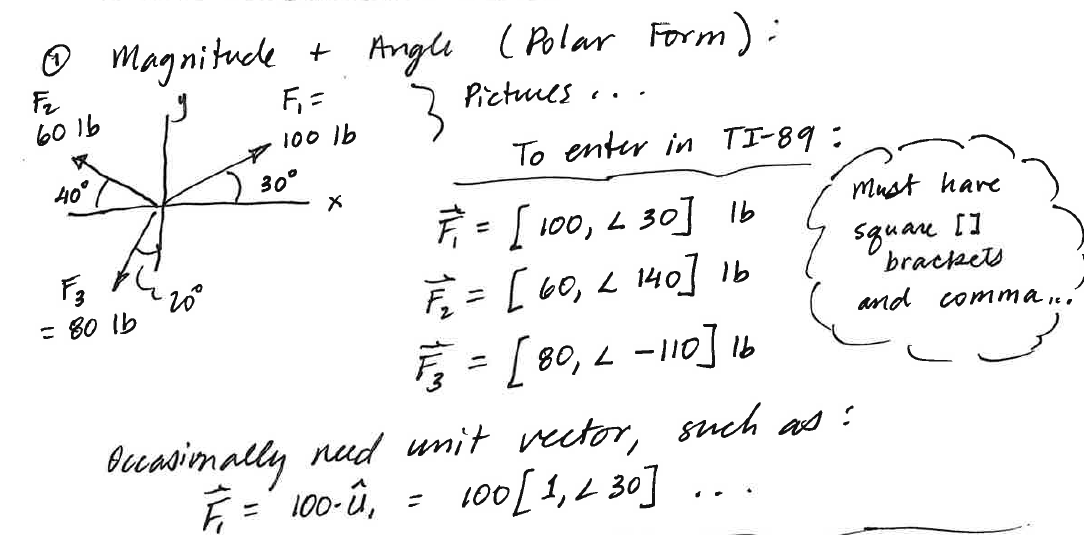 ① Magnitude + Angle (Polar Form):
F₂
60 lb
y
F₁ =
100 lb
} Pictures ...
40°
30°
x
F₃
= 80 lb
20°
To enter in TI-89:
F⃗₁ = [100, ∠ 30] lb
F⃗₂ = [60, ∠ 140] lb
F⃗₃ = [80, ∠ -110] lb
Must have
square []
brackets
and comma...
Occasionally need unit vector, such as:
F⃗₁ = 100·û₁ = 100[1, ∠ 30] ...